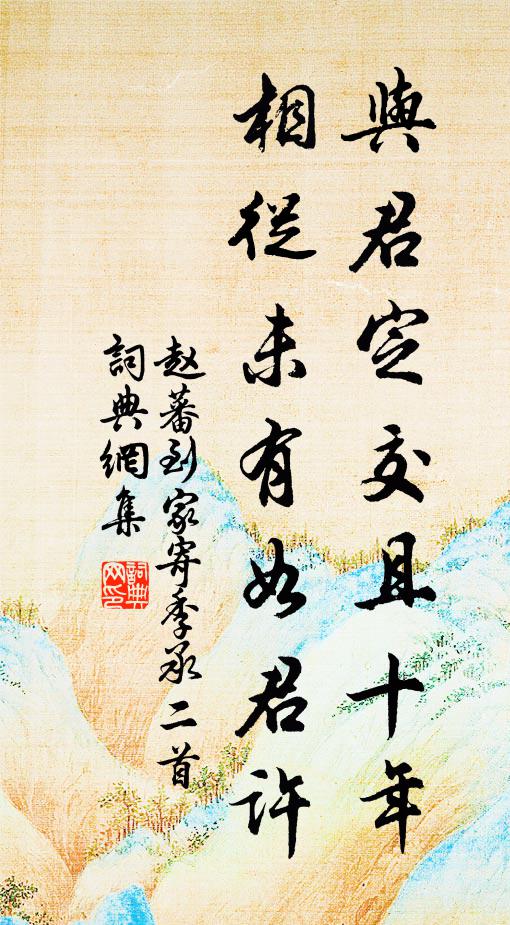 與君定交且十年
相從未有如君許
赵蕃到家寄季承二首
詞典網集
詞典
网